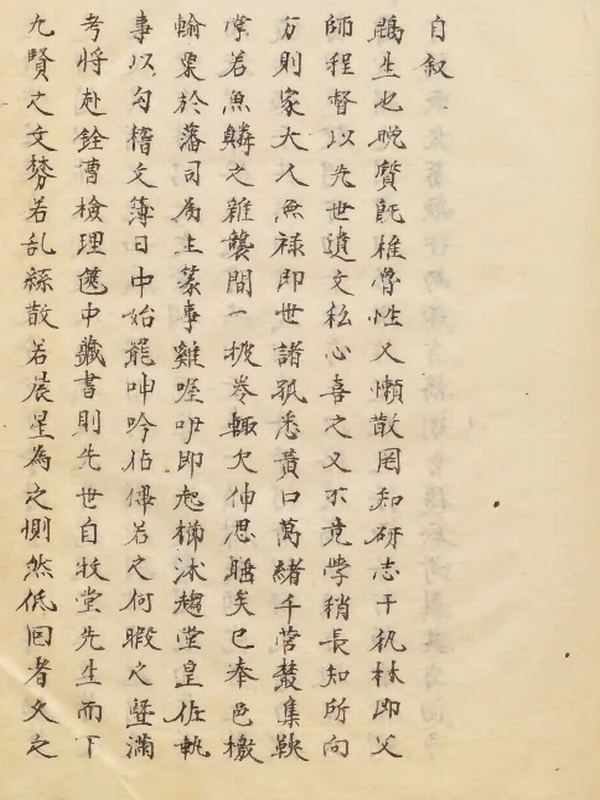 自叙
鵬生也晚質既椎魯性又懶散罔知研志于秇林即父
師程督以先世遺文私心喜之又不竟學稍長知所向
方則家大人無祿即世諸孤悉黃口萬緒千營叢集鞅
掌若魚鱗之雜襲間一披卷輙欠伸思睡矣已奉邑檄
輸粟於藩司為主篆事雞喔吚即起櫛沐趨堂皇佐
事以勾稽文簿日中始罷呻吟佔俾若之何暇之曁滿
考將赴銓曹檢理篋中藏書則先世自牧堂先生而下
九賢之文棼若乱絲散若晨星為之惻然低回者久之